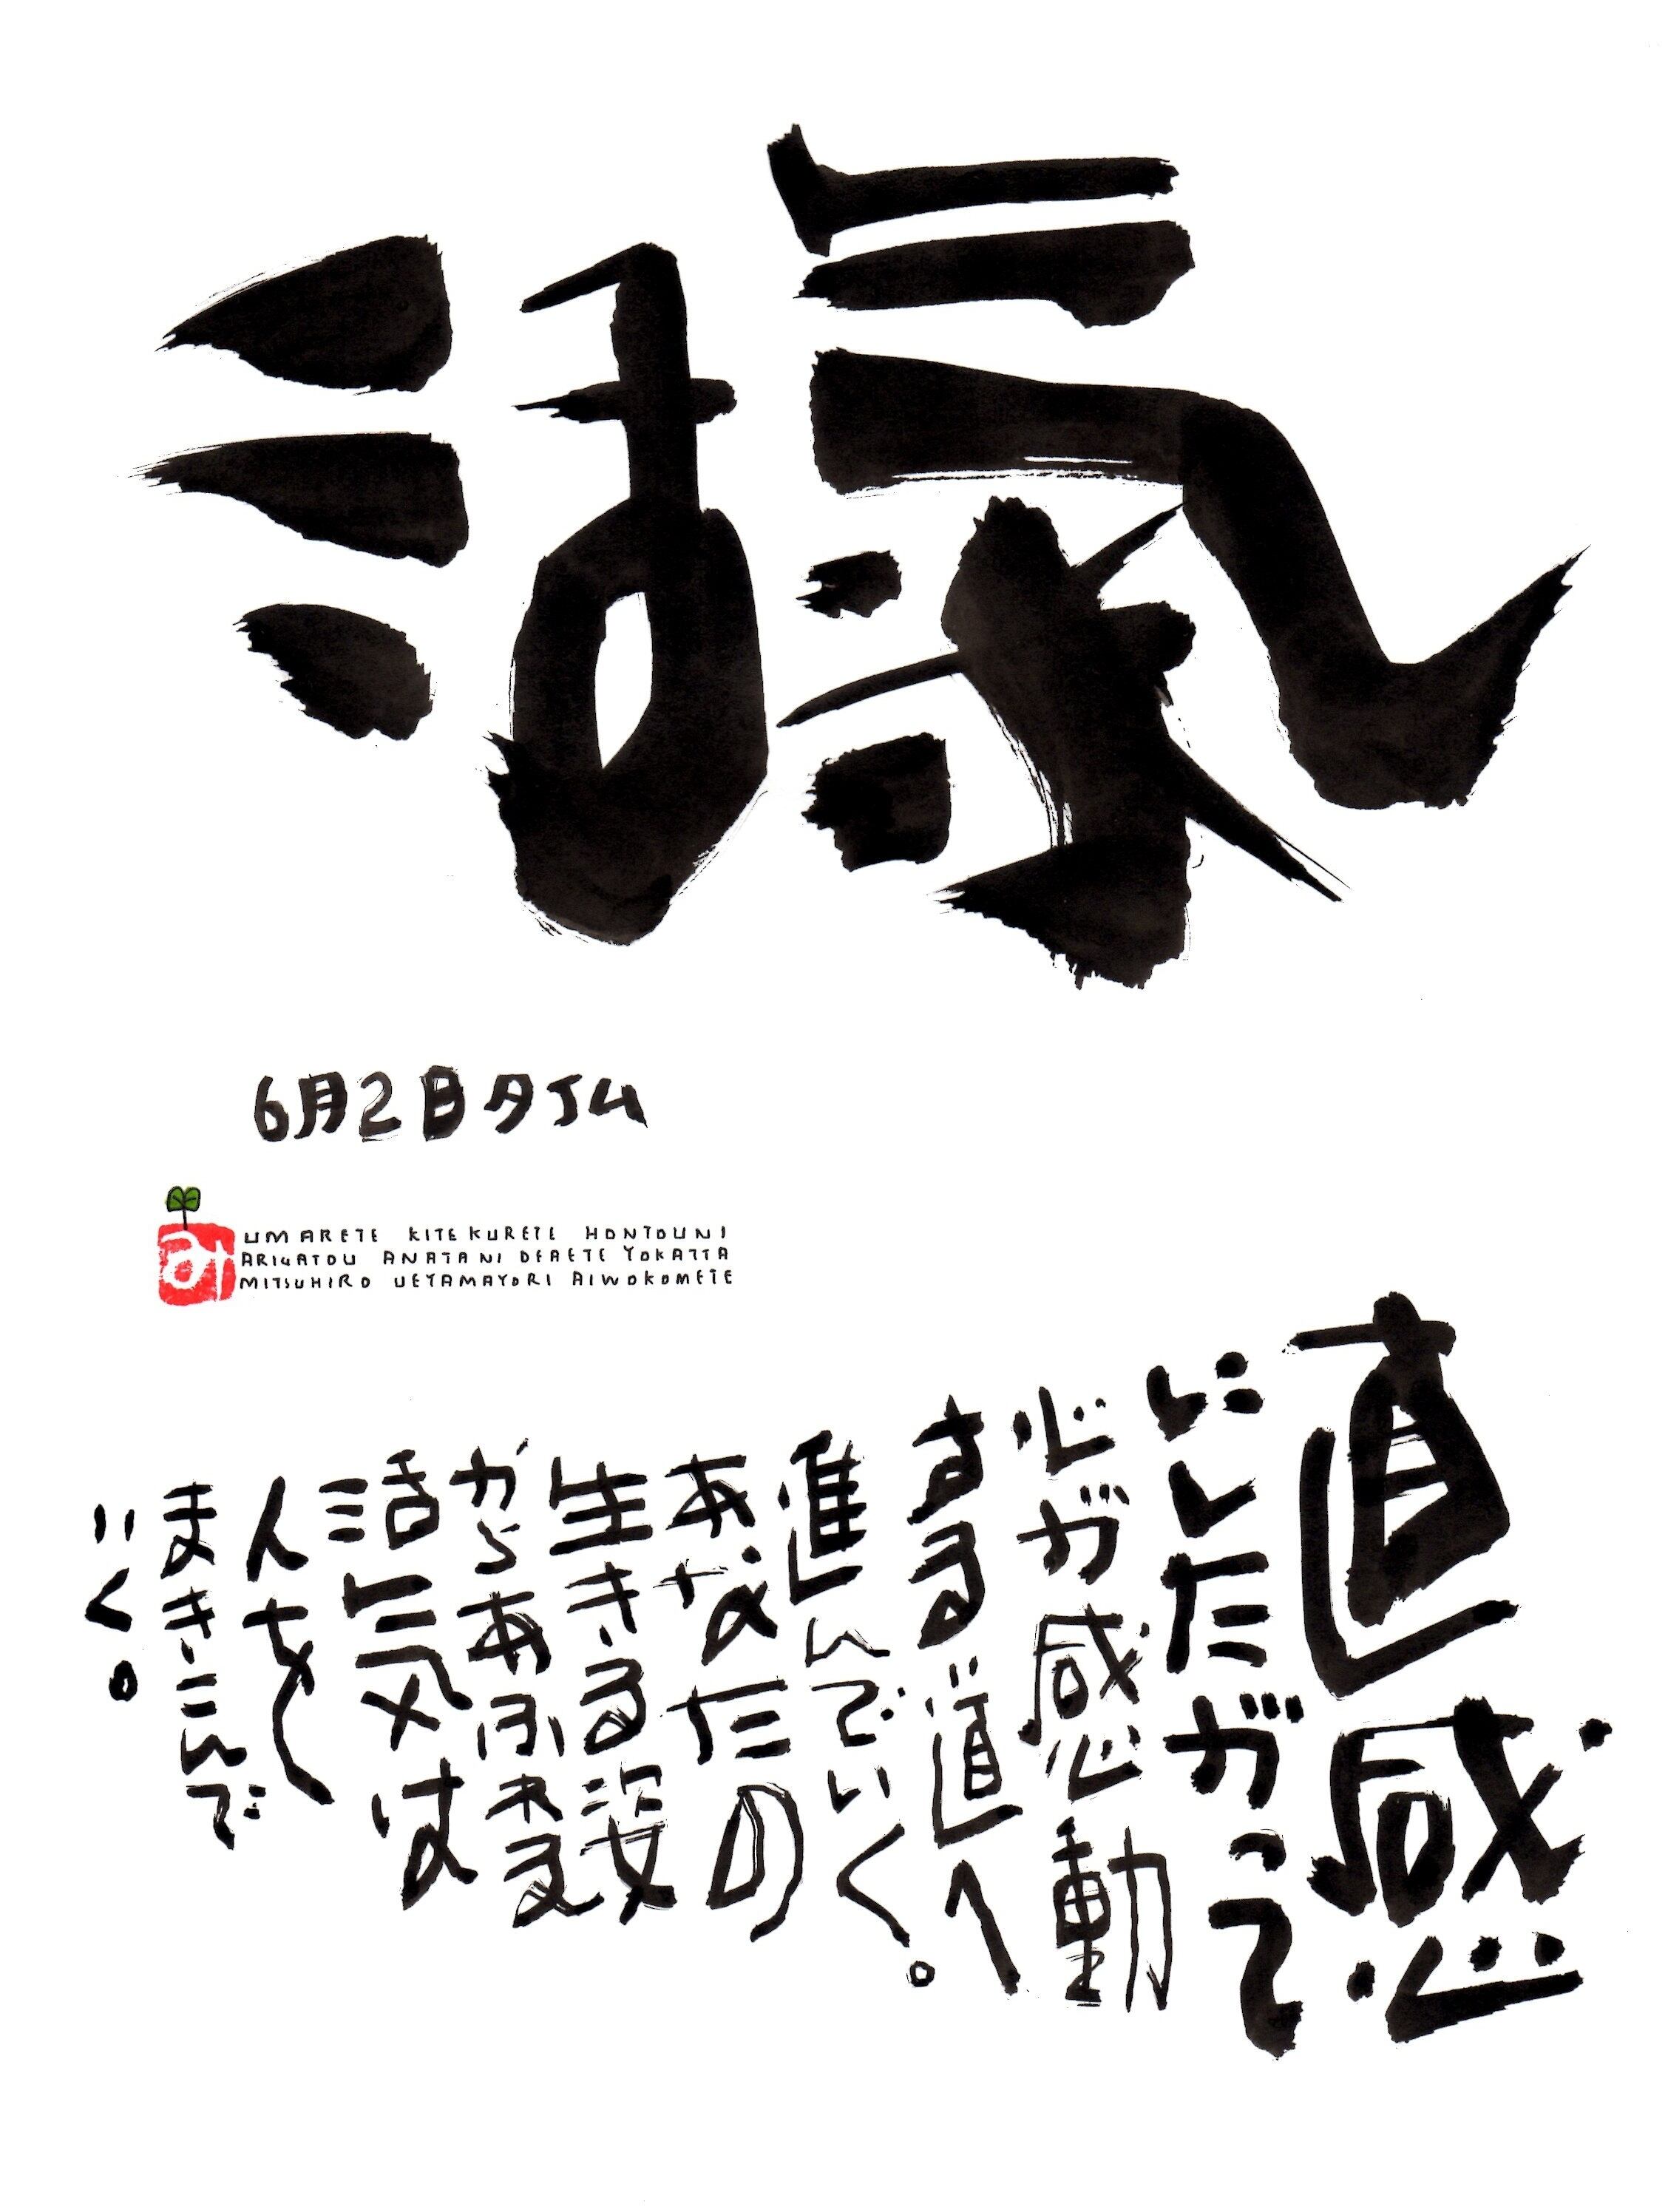 活氣
6月2日タJム
み
UMARETE KITEKURETE HONTOUNI
ARIGATOU ANATANI DEAETE YOKATTA
MITSUHIRO UEYAMAYORI AIWOKOMETE
直感
にしたがって
心が感動
する道へ
進んでいく。
あなたの
生きる姿
からあふれる
活気は
人を
まきこんで
いく。